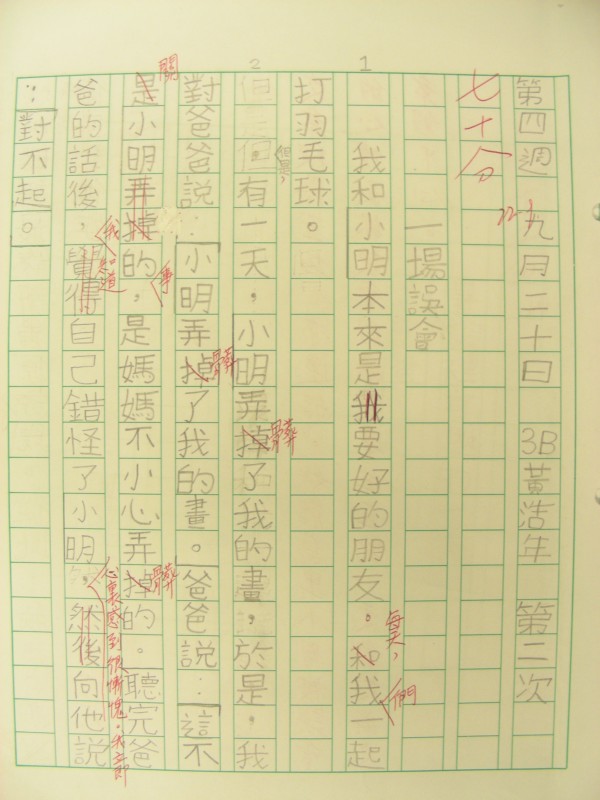 第四週 九月二十日 3B 黃浩年 第二次
22
七十分
一場誤會
1
我和小明本來是我要好的朋友。和我一起
每天，
們
打羽毛球。
2
但是，
有一天，小明弄掉了我的畫，於是，我
髒
對爸爸說：「小明弄掉了我的畫。」爸爸說：「這不
髒
關
是小明弄掉的，是媽媽不小心弄掉的。聽完爸
事
髒
爸的話後，覺得自己錯怪了小明，然後向他說
我
知道
心裏感到很慚愧。我立即
：「對不起。」